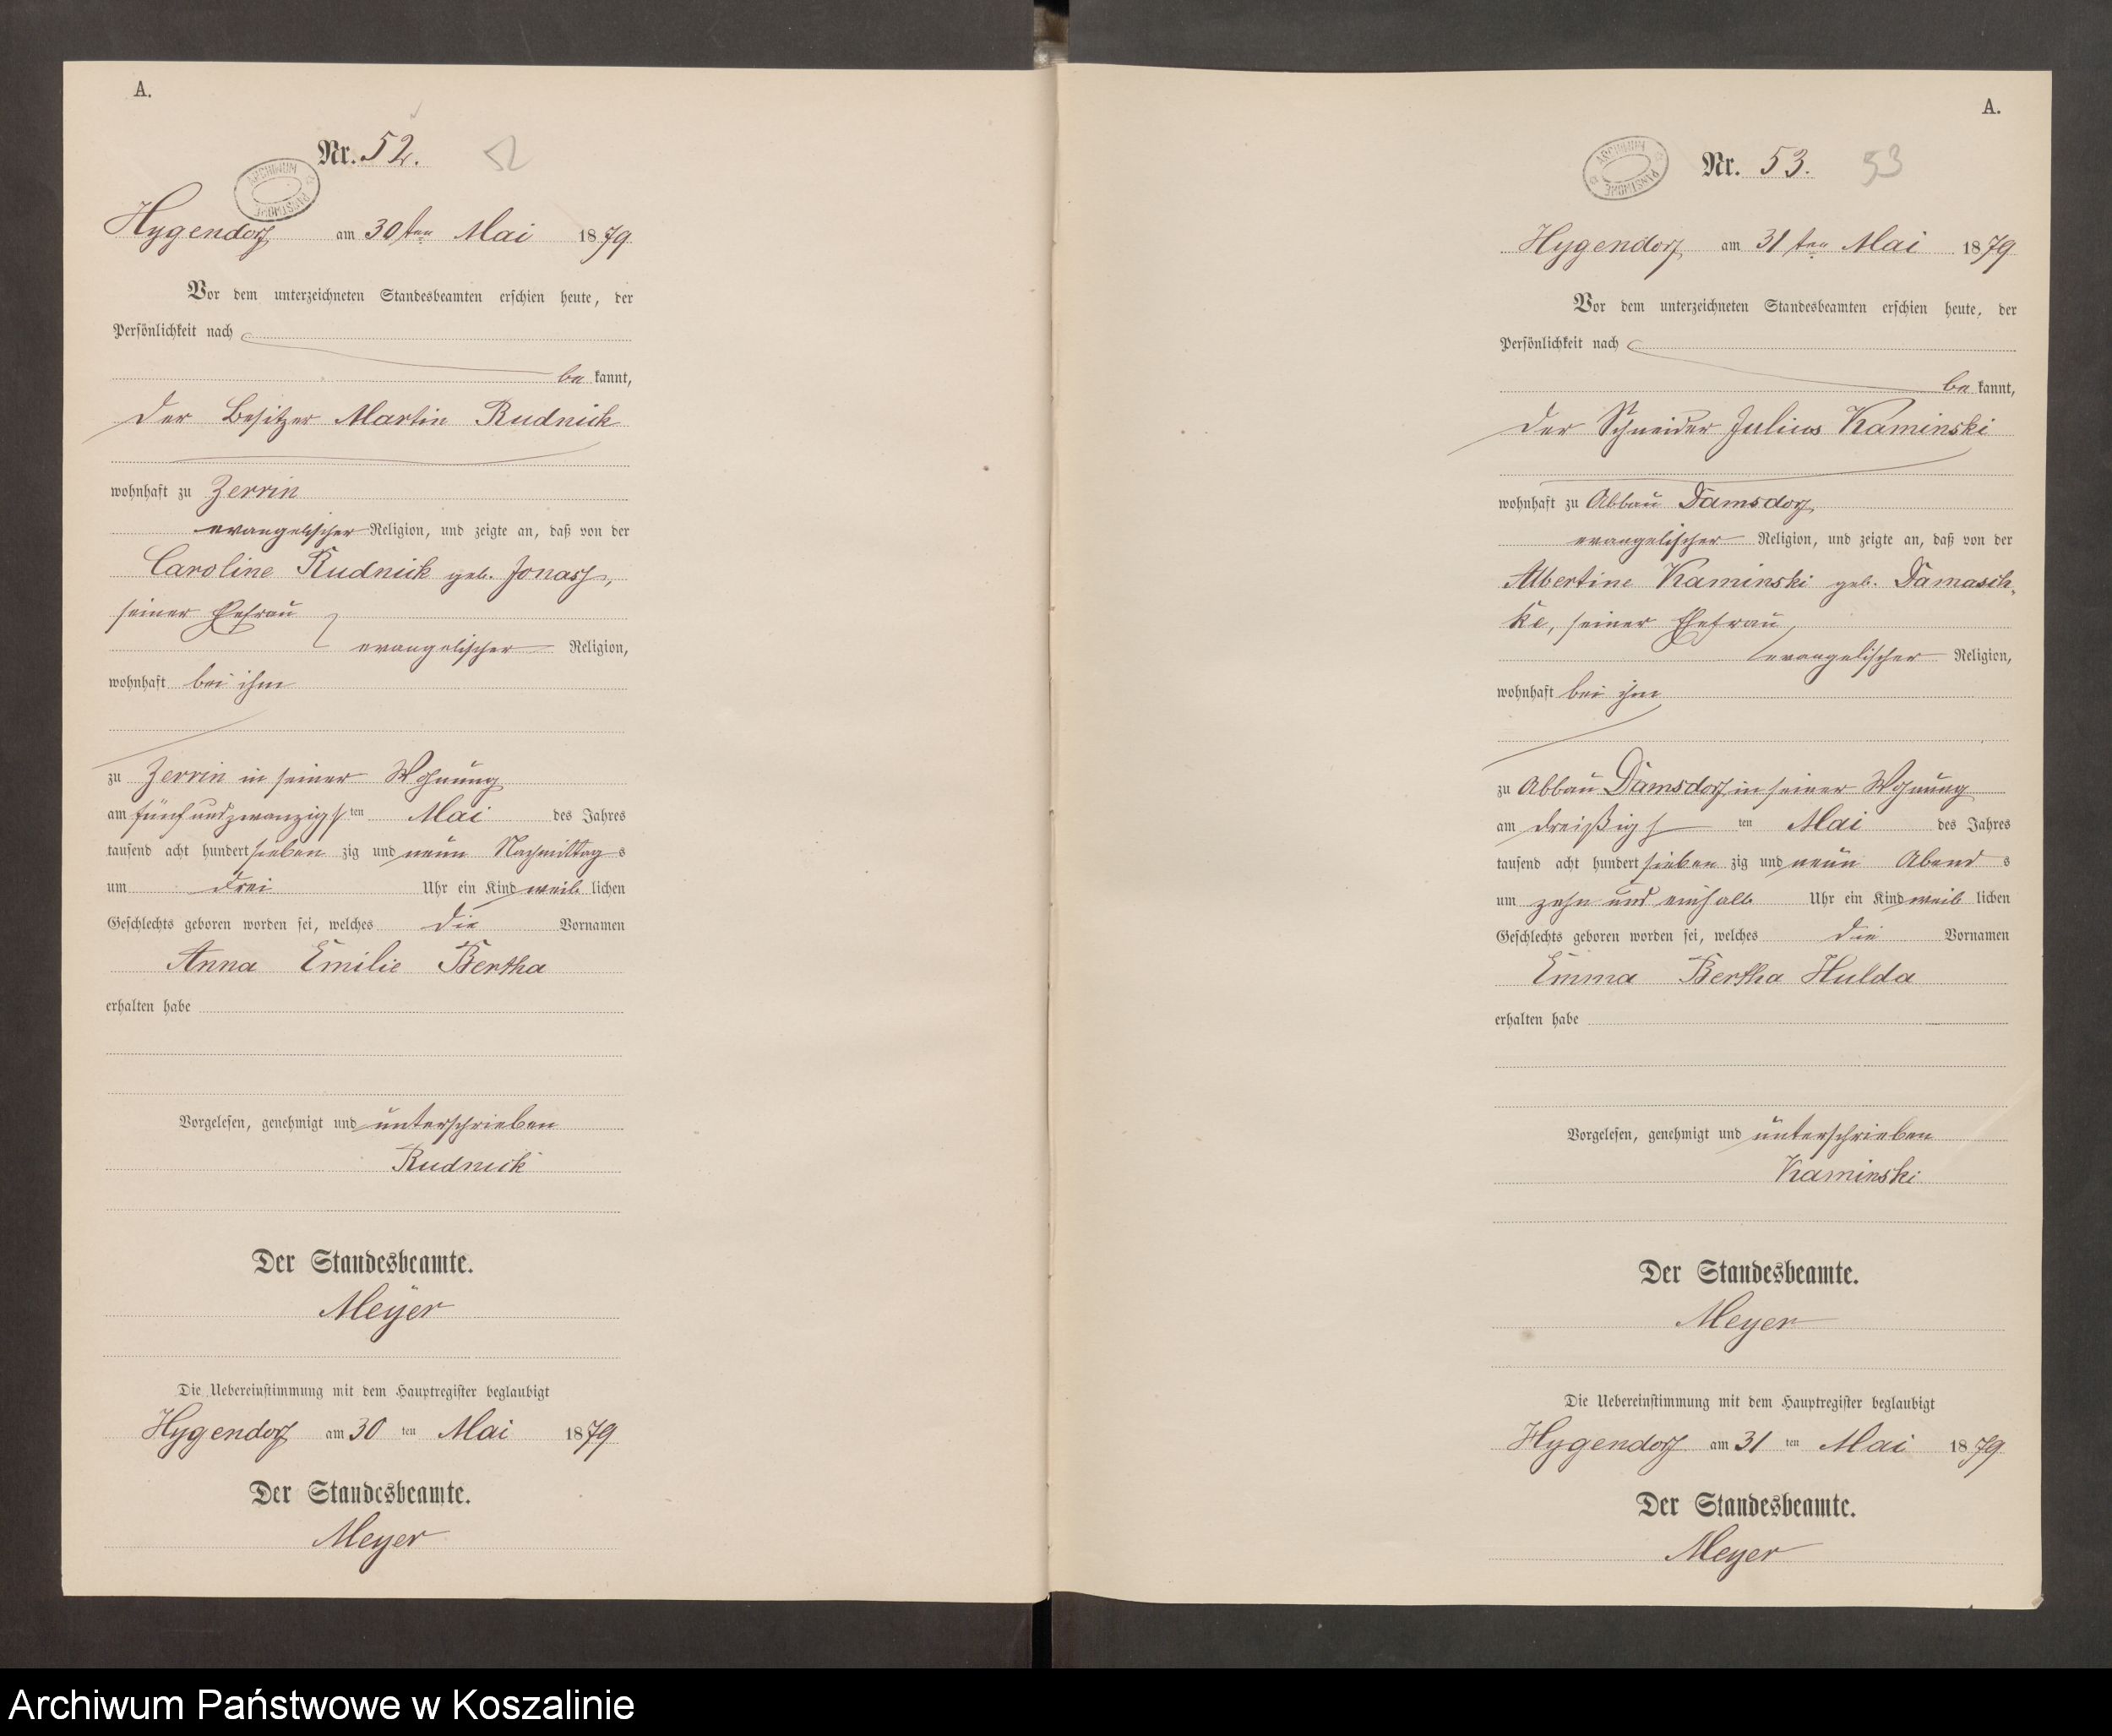 A.
Nr. 52.
52
ARCHIWUM PAŃSTWOWE
Hygendorf am 30ten Mai 1879
Vor dem unterzeichneten Standesbeamten erschien heute, der
Persönlichkeit nach
be kannt,
der Besitzer Martin Rudnick
wohnhaft zu Zerrin
evangelischer Religion, und zeigte an, daß von der
Caroline Rudnick geb. Jonass,
seiner Ehefrau
evangelischer Religion,
wohnhaft bei ihm
zu Zerrin in seiner Wohnung
am fünfundzwanzigsten Mai des Jahres
tausend acht hundert sieben zig und neun Nachmittags
um drei Uhr ein Kind weib lichen
Geschlechts geboren worden sei, welches die Vornamen
Anna Emilie Bertha
erhalten habe
Vorgelesen, genehmigt und unterschrieben
Rudnick
Der Standesbeamte.
Meyer
Die Uebereinstimmung mit dem Hauptregister beglaubigt
Hygendorf am 30 ten Mai 1879
Der Standesbeamte.
Meyer
A.
Nr. 53.
53
ARCHIWUM PAŃSTWOWE
Hygendorf am 31ten Mai 1879
Vor dem unterzeichneten Standesbeamten erschien heute, der
Persönlichkeit nach
be kannt,
der Schneider Julius Kaminski
wohnhaft zu Abbau Damsdorf
evangelischer Religion, und zeigte an, daß von der
Albertine Kaminski geb. Damasch-
ke, seiner Ehefrau,
evangelischer Religion,
wohnhaft bei ihm
zu Abbau Damsdorf in seiner Wohnung
am dreißigsten Mai des Jahres
tausend acht hundert sieben zig und neun Abend s
um zehn und einhalb Uhr ein Kind weib lichen
Geschlechts geboren worden sei, welches die Vornamen
Emma Bertha Hulda
erhalten habe
Vorgelesen, genehmigt und unterschrieben
Kaminski
Der Standesbeamte.
Meyer
Die Uebereinstimmung mit dem Hauptregister beglaubigt
Hygendorf am 31 ten Mai 1879
Der Standesbeamte.
Meyer
Archiwum Państwowe w Koszalinie